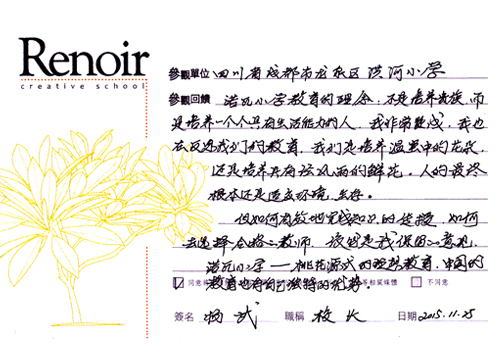 Renoir
creative school
參觀單位 四川省成都市龙泉区洪河小学
參觀回饋 诺瓦小学教育的理念,不是培养贵族,而
是培养一个个具有生活能力的人,我非常赞成,我也
在反思我们的教育,我们是培养温室中的花朵,
还是培养具有经风雨的鲜花。人的最终
根本还是适应环境,生存。
但如何有效地实践知识的传授,如何
去选择合格的教师,该是我保留的意见,
诺瓦小学——桃花源式的理想教育,中国的
教育也有自己独特的优势。
同意 等相關媒體 不同意
簽名 杨武 職稱 校长 日期 2015.11.25